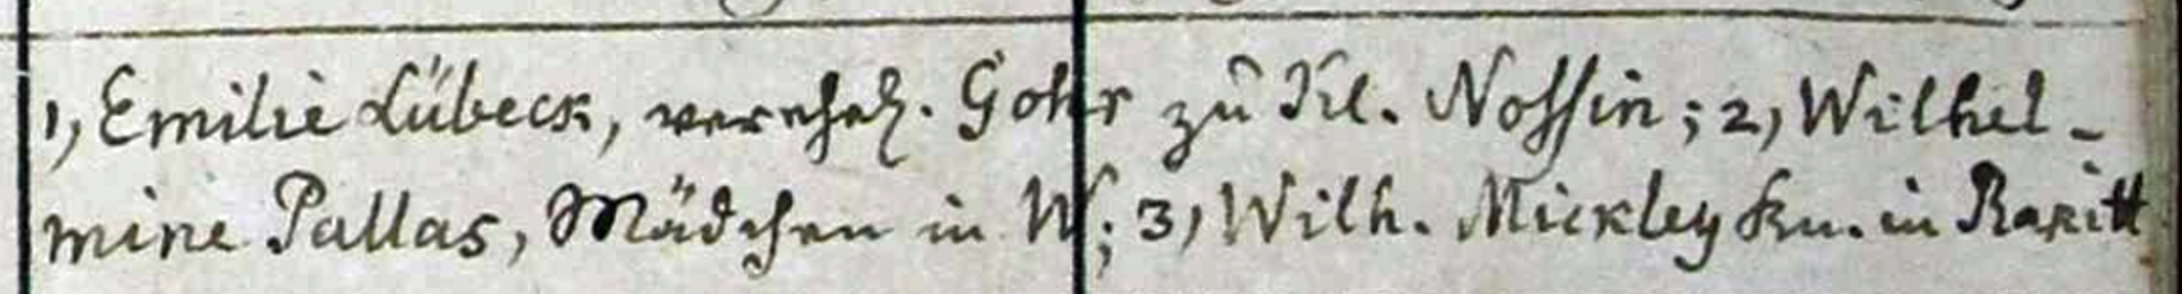 1, Emilie Lübeck, verehel. Gohr zu Kl. Nossin; 2, Wilhel-
mine Pallas, Mädchen in W; 3, Wilh. Mickley Kn. in